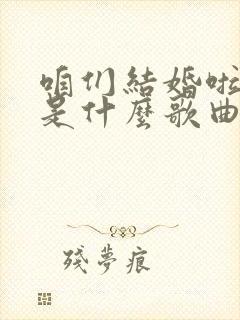 咱们結婚啦
是什麼歌曲
殘夢痕